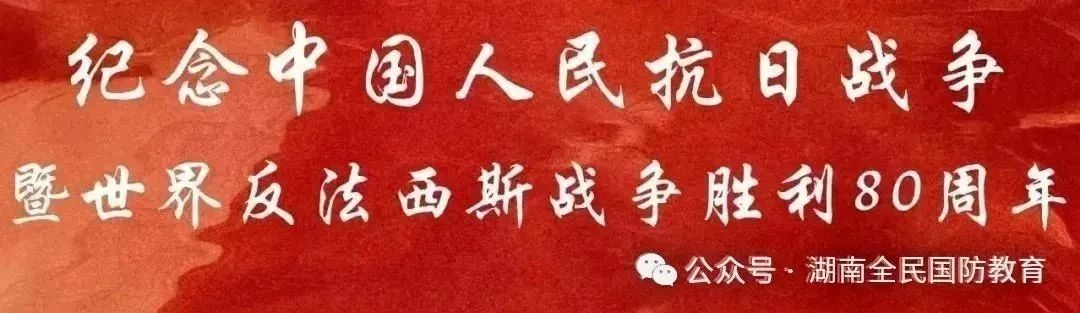 纪念中国人民抗日战争
暨世界反法西斯战争胜利80周年
公众号·湖南全民国防教育